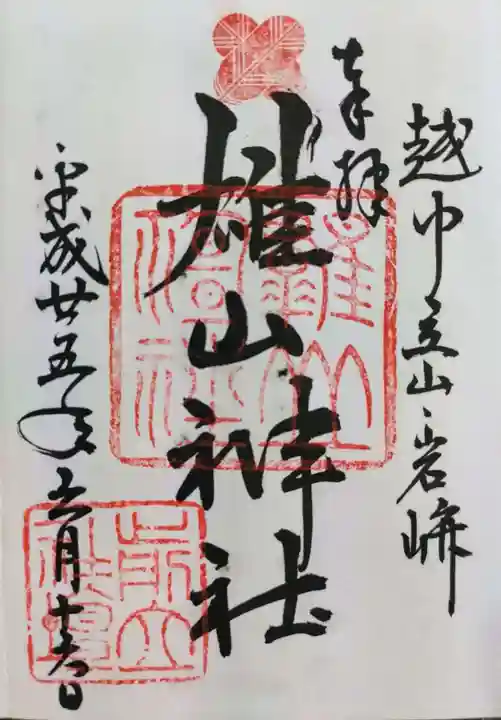 奉拝
越中立山、岩峅
雄山神社
平成廿五年五月十六日
雄山神社
前立社壇